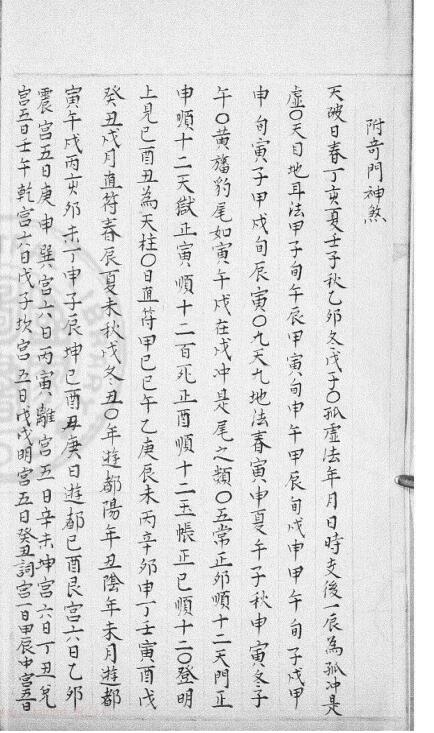 附奇門神煞
天破日春丁亥夏壬子秋乙卯冬戊子○孤虛法年月日時支後一辰為孤冲是
虛○天目地耳法甲子旬午辰甲寅旬申午甲辰旬戌申甲午旬子戌甲
申旬寅子甲戌旬辰寅○九天九地法春寅申夏午子秋申寅冬子
午○黃旛豹尾如寅午戌在戌冲是尾之類○五常正卯順十二天門正
申順十二天獄正寅順十二百死正酉順十二玉帳正巳順十二○登明
上見巳酉丑為天柱○日直符甲巳巳午乙庚辰未丙辛卯申丁壬寅酉戊
癸丑戌月直符春辰夏未秋戌冬丑○年遊都陽年丑陰年未月遊都
寅午戌丙亥卯未丁申子辰坤巳酉丑庚日遊都巳酉艮宮六日乙卯
震宮五日庚申巽宮六日丙寅離宮五日辛未坤宮六日丁丑兌
宮五日壬午乾宮六日戊子坎宮五日戊戌明宮五日癸丑詞宮一日甲辰中宮五日